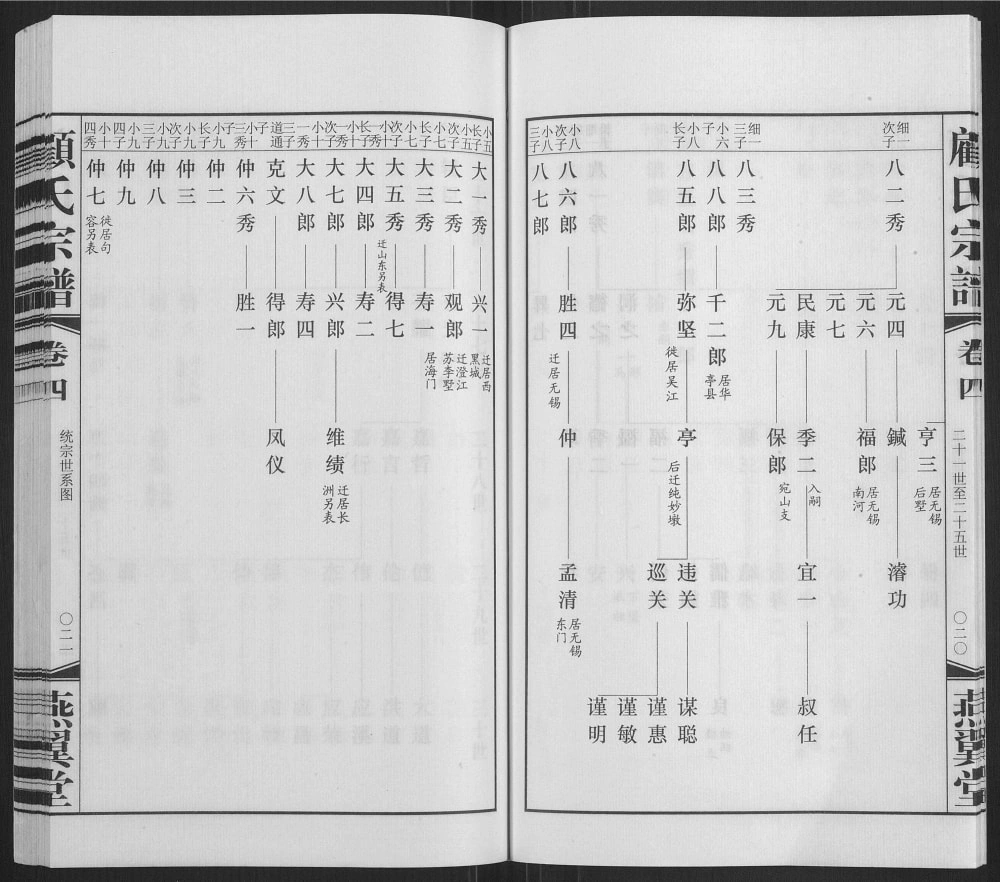 顧氏宗譜
卷四
二十一世至二十五世
〇二〇
燕翼堂
亨三
居无锡
后墅
细一
次子
八二秀
元四
鍼
濬功
元六
福郎
居无锡
南河
元七
民康
季二
入嗣
宜一
叔任
元九
保郎
宛山支
细一
三子
八三秀
小六
子
八八郎
千二郎
居华
亭县
小八
长子
八五郎
弥坚
徙居吴江
亭
后迁纯妙墩
违关
谋聪
巡关
谨惠
谨敏
谨明
小八
次子
八六郎
胜四
迁居无锡
仲
孟清
居无锡
东门
小八
三子
八七郎
小五
长子
大一秀
兴一
迁居西
黑城
小五
次子
大二秀
观郎
迁澄江
苏李墅
小七
长子
大三秀
寿一
居海门
小七
次子
大五秀
迁山东另表
得七
小十
一秀
长子
大四郎
寿二
小十
一秀
次子
大七郎
兴郎
维绩
迁居长
洲另表
小十
一秀
三子
大八郎
寿四
道通
子
克文
得郎
凤仪
小十
三秀
子
仲六秀
胜一
小九
长子
仲二
小九
次子
仲三
小九
三子
仲八
小九
四子
仲九
小十
四秀
仲七
徙居句
容另表
顧氏宗譜
卷四
统宗世系图
〇二一
燕翼堂